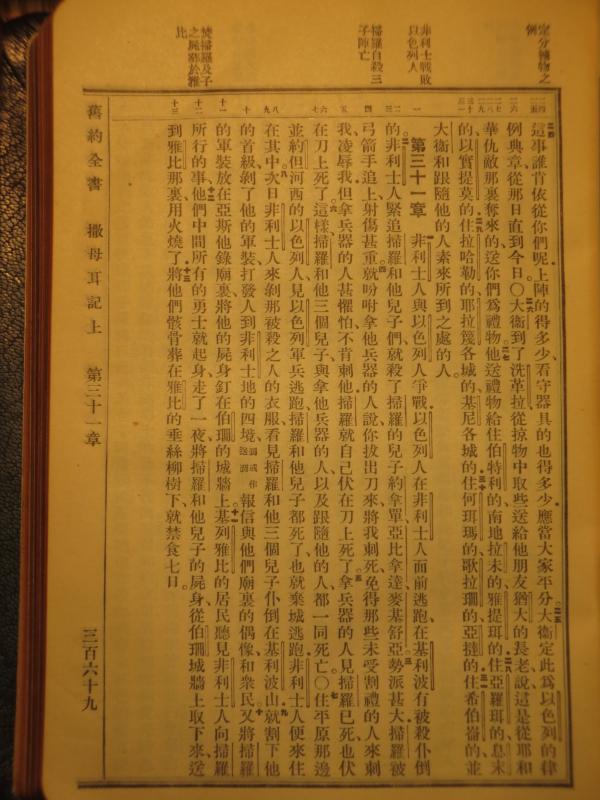 定分擄物之
例
非利士戰敗
以色列人
掃羅自殺三
子陣亡
焚掃羅及子
之屍葬於雅
比
這事誰肯依從你們呢上陣的得多少、看守器具的也得多少。應當大家平分大衛定此爲以色列的律
例典章從那日直到今日。○大衛到了洗革拉從掠物中取些送給他朋友猶大的長老說這是從耶和
華仇敵那裏奪來的送你們爲禮物他送禮物給住伯特利的南地拉未的雅提珥的住亞羅珥的息末
的以實提莫的住拉哈勒的耶拉篾各城的基尼各城的住何珥瑪的歌拉珊的亞撻的住希伯崙的並
大衛和跟隨他的人素來所到之處的人。
第三十一章 非利士人與以色列人爭戰以色列人在非利士人面前逃跑在基利波有被殺仆倒
的非利士人緊追掃羅和他兒子們就殺了掃羅的兒子約拿單亞比拿達麥基舒亞勢派甚大掃羅被
弓箭手追上射傷甚重就吩咐拿他兵器的人說你拔出刀來將我刺死免得那些未受割禮的人來刺
我凌辱我但拿兵器的人甚懼怕不肯刺他掃羅就自己伏在刀上死了拿兵器的人見掃羅已死也伏
在刀上死了這樣掃羅和他三個兒子與拿他兵器的人以及跟隨他的人都一同死亡。○住平原那邊
並約但河西的以色列人見以色列軍兵逃跑掃羅和他兒子都死了也就棄城逃跑非利士人便來住
在其中次日非利士人來剝那被殺之人的衣服看見掃羅和他三個兒子仆倒在基利波山就割下他
的首級剝了他的軍裝打發人到非利士地的四境報信與他們廟裏的偶像和衆民又將掃羅
的軍裝放在亞斯他錄廟裏將他的屍身釘在伯珊的城牆上基列雅比的居民聽見非利士人向掃羅
所行的事他們中間所有的勇士就起身走了一夜將掃羅和他兒子的屍身從伯珊城牆上取下來送
到雅比那裏用火燒了將他們骸骨葬在雅比的垂絲柳樹下就禁食七日。
舊約全書 撒母耳記上 第三十一章 三百六十九